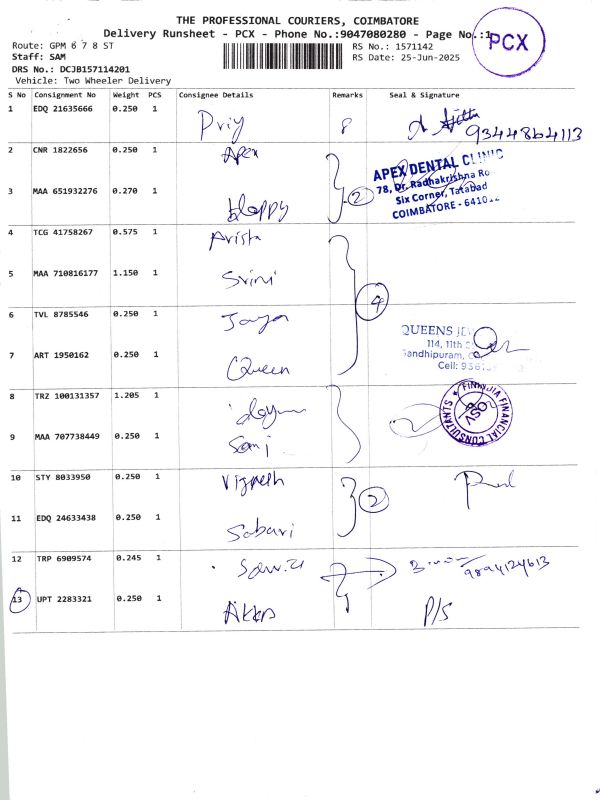 THE PROFESSIONAL COURIERS, COIMBATORE
Delivery Runsheet - PCX - Phone No.:9047080280 - Page No.:1
PCX
Route: GPM 6 7 8 ST
RS No.: 1571142
Staff: SAM
RS Date: 25-Jun-2025
DRS No.: DCJB157114201
Vehicle: Two Wheeler Delivery
S No Consignment No Weight PCS Consignee Details Remarks Seal & Signature
1 EDQ 21635666 0.250 1 Priy 8 9344864113
2 CNR 1822656 0.250 1 Apex
APEX DENTAL CLINIC
78, Dr. Radhakrishna Ro
Six Corner, Tatabad
COIMBATORE - 641012
3 MAA 651932276 0.270 1 Happy 2
4 TCG 41758267 0.575 1 Arista
5 MAA 710816177 1.150 1 Srini 4
6 TVL 8785546 0.250 1 Jaya
QUEENS
114, 11th
Gandhipuram,
Cell: 936
7 ART 1950162 0.250 1 Queen
8 TRZ 100131357 1.205 1
FINANCIAL CONSULTANTS
9 MAA 707738449 0.250 1 Sanj
10 STY 8033950 0.250 1 Vignesh 2
11 EDQ 24633438 0.250 1 Sabari
12 TRP 6909574 0.245 1 9894124613
13 UPT 2283321 0.250 1 P/S